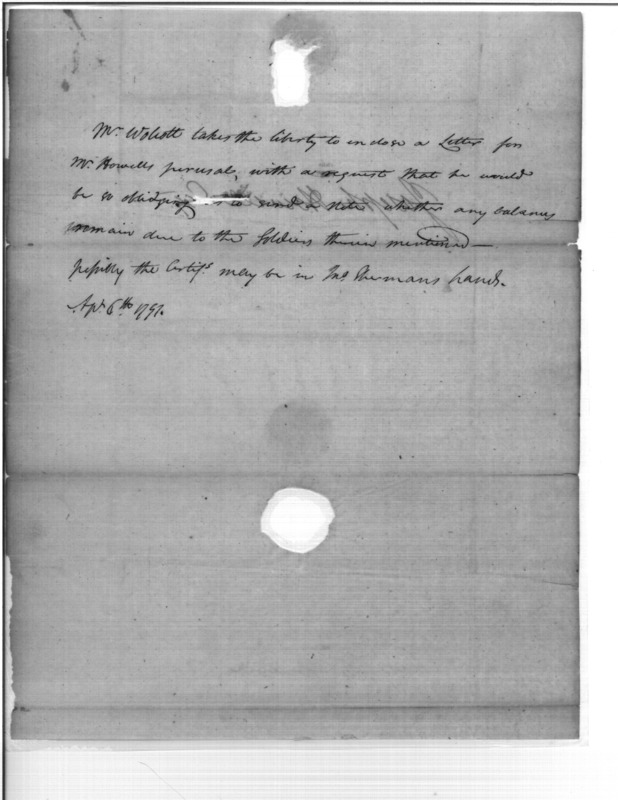 Mr. Wolcott takes the liberty to inclose a Letter for
Mr. Howells perusal, with a request that he would
be so obliging as to send a note whether any balances
remain due to the Soldiers therein mentioned—
possibly the Certifs. may be in Mr. Shermans hands.
Apr. 6th 1791.